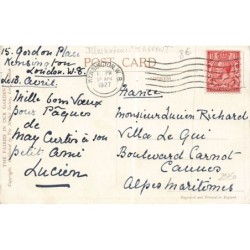 15. Gordon Place
Kensington
London. W.8.
Le 13. Avril.
POST CARD
KENSINGTON. W.8.
1927
France
Mille bons Vœux
pour Pâques
de
May Curtis à son
petit Ami
Lucien
Monsieur Lucien Richard
Villa Le Gui
Boulevard Carnot
Cannes
Alpes Maritimes